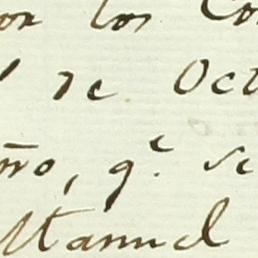 con los Co
de Oct
mo, q.e se
Manuel